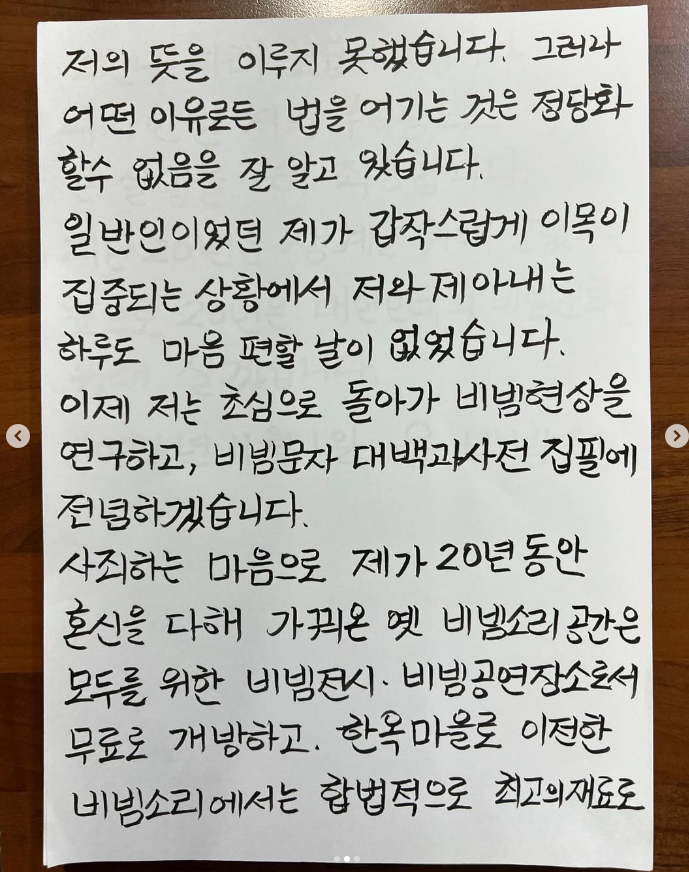 저의 뜻을 이루지 못했습니다. 그러나
어떤 이유로든 법을 어기는 것은 정당화
할수 없음을 잘 알고 있습니다.
일반인이었던 제가 갑작스럽게 이목이
집중되는 상황에서 저와 제 아내는
하루도 마음 편할 날이 없었습니다.
이제 저는 초심으로 돌아가 비빔현상을
연구하고, 비빔문자 대백과사전 집필에
전념하겠습니다.
사죄하는 마음으로 제가 20년 동안
혼신을 다해 가꿔온 옛 비빔소리 공간은
모두를 위한 비빔전시·비빔공연장소로서
무료로 개방하고. 한옥마을로 이전한
비빔소리에서는 합법적으로 최고의재료로